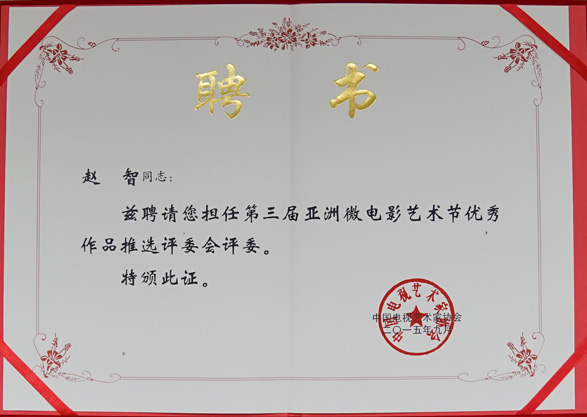 聘书
赵 智同志：
兹聘请您担任第三届亚洲微电影艺术节优秀
作品推选评委会评委。
特颁此证。
中国电视艺术家协会
中国电视艺术家协会
二〇一五年九月